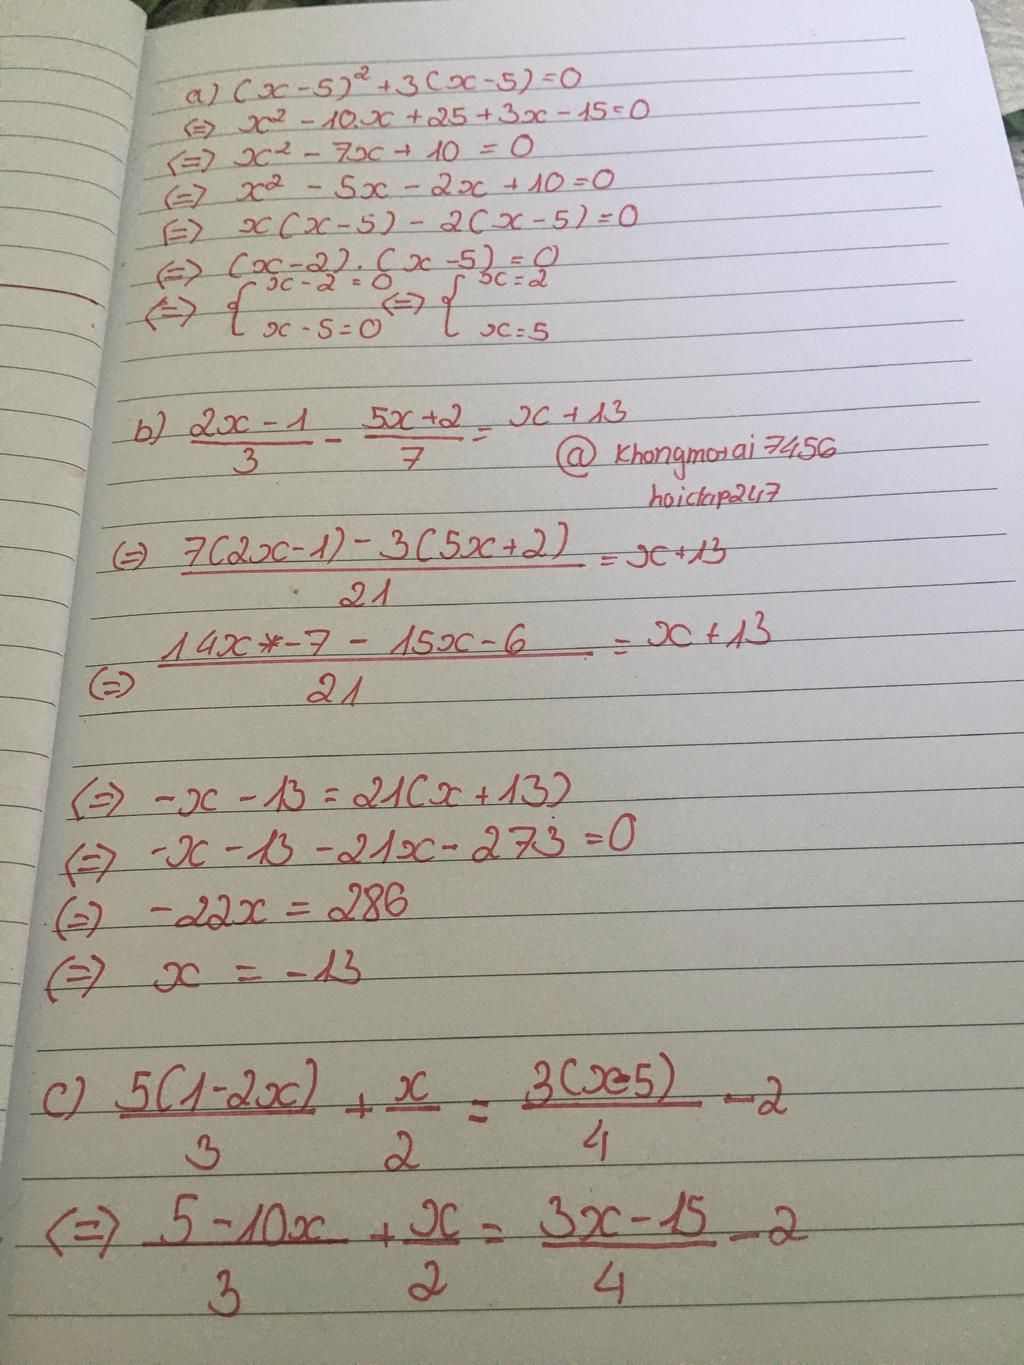 a) (x-5)² + 3(x-5)=0
(=) x² - 10x + 25 + 3x - 15=0
(=) x² - 7x + 10 = 0
(=) x² - 5x - 2x + 10=0
(=) x(x-5) - 2(x-5)=0
(=) (x-2).(x-5)=0
(=) { x-2=0 (=) { x=2
x-5=0 x=5
b) 2x-1/3 - 5x+2/7 = x+13
@ Khongmorai7456
hoidap247
(=) 7(2x-1)-3(5x+2)/21 = x+13
(=) 14x-7-15x-6/21 = x+13
(=) -x-13=21(x+13)
(=) -x-13-21x-273=0
(=) -22x=286
(=) x = -13
c) 5(1-2x)/3 + x/2 = 3(x-5)/4 -2
(=) 5-10x/3 + x/2 = 3x-15/4 -2